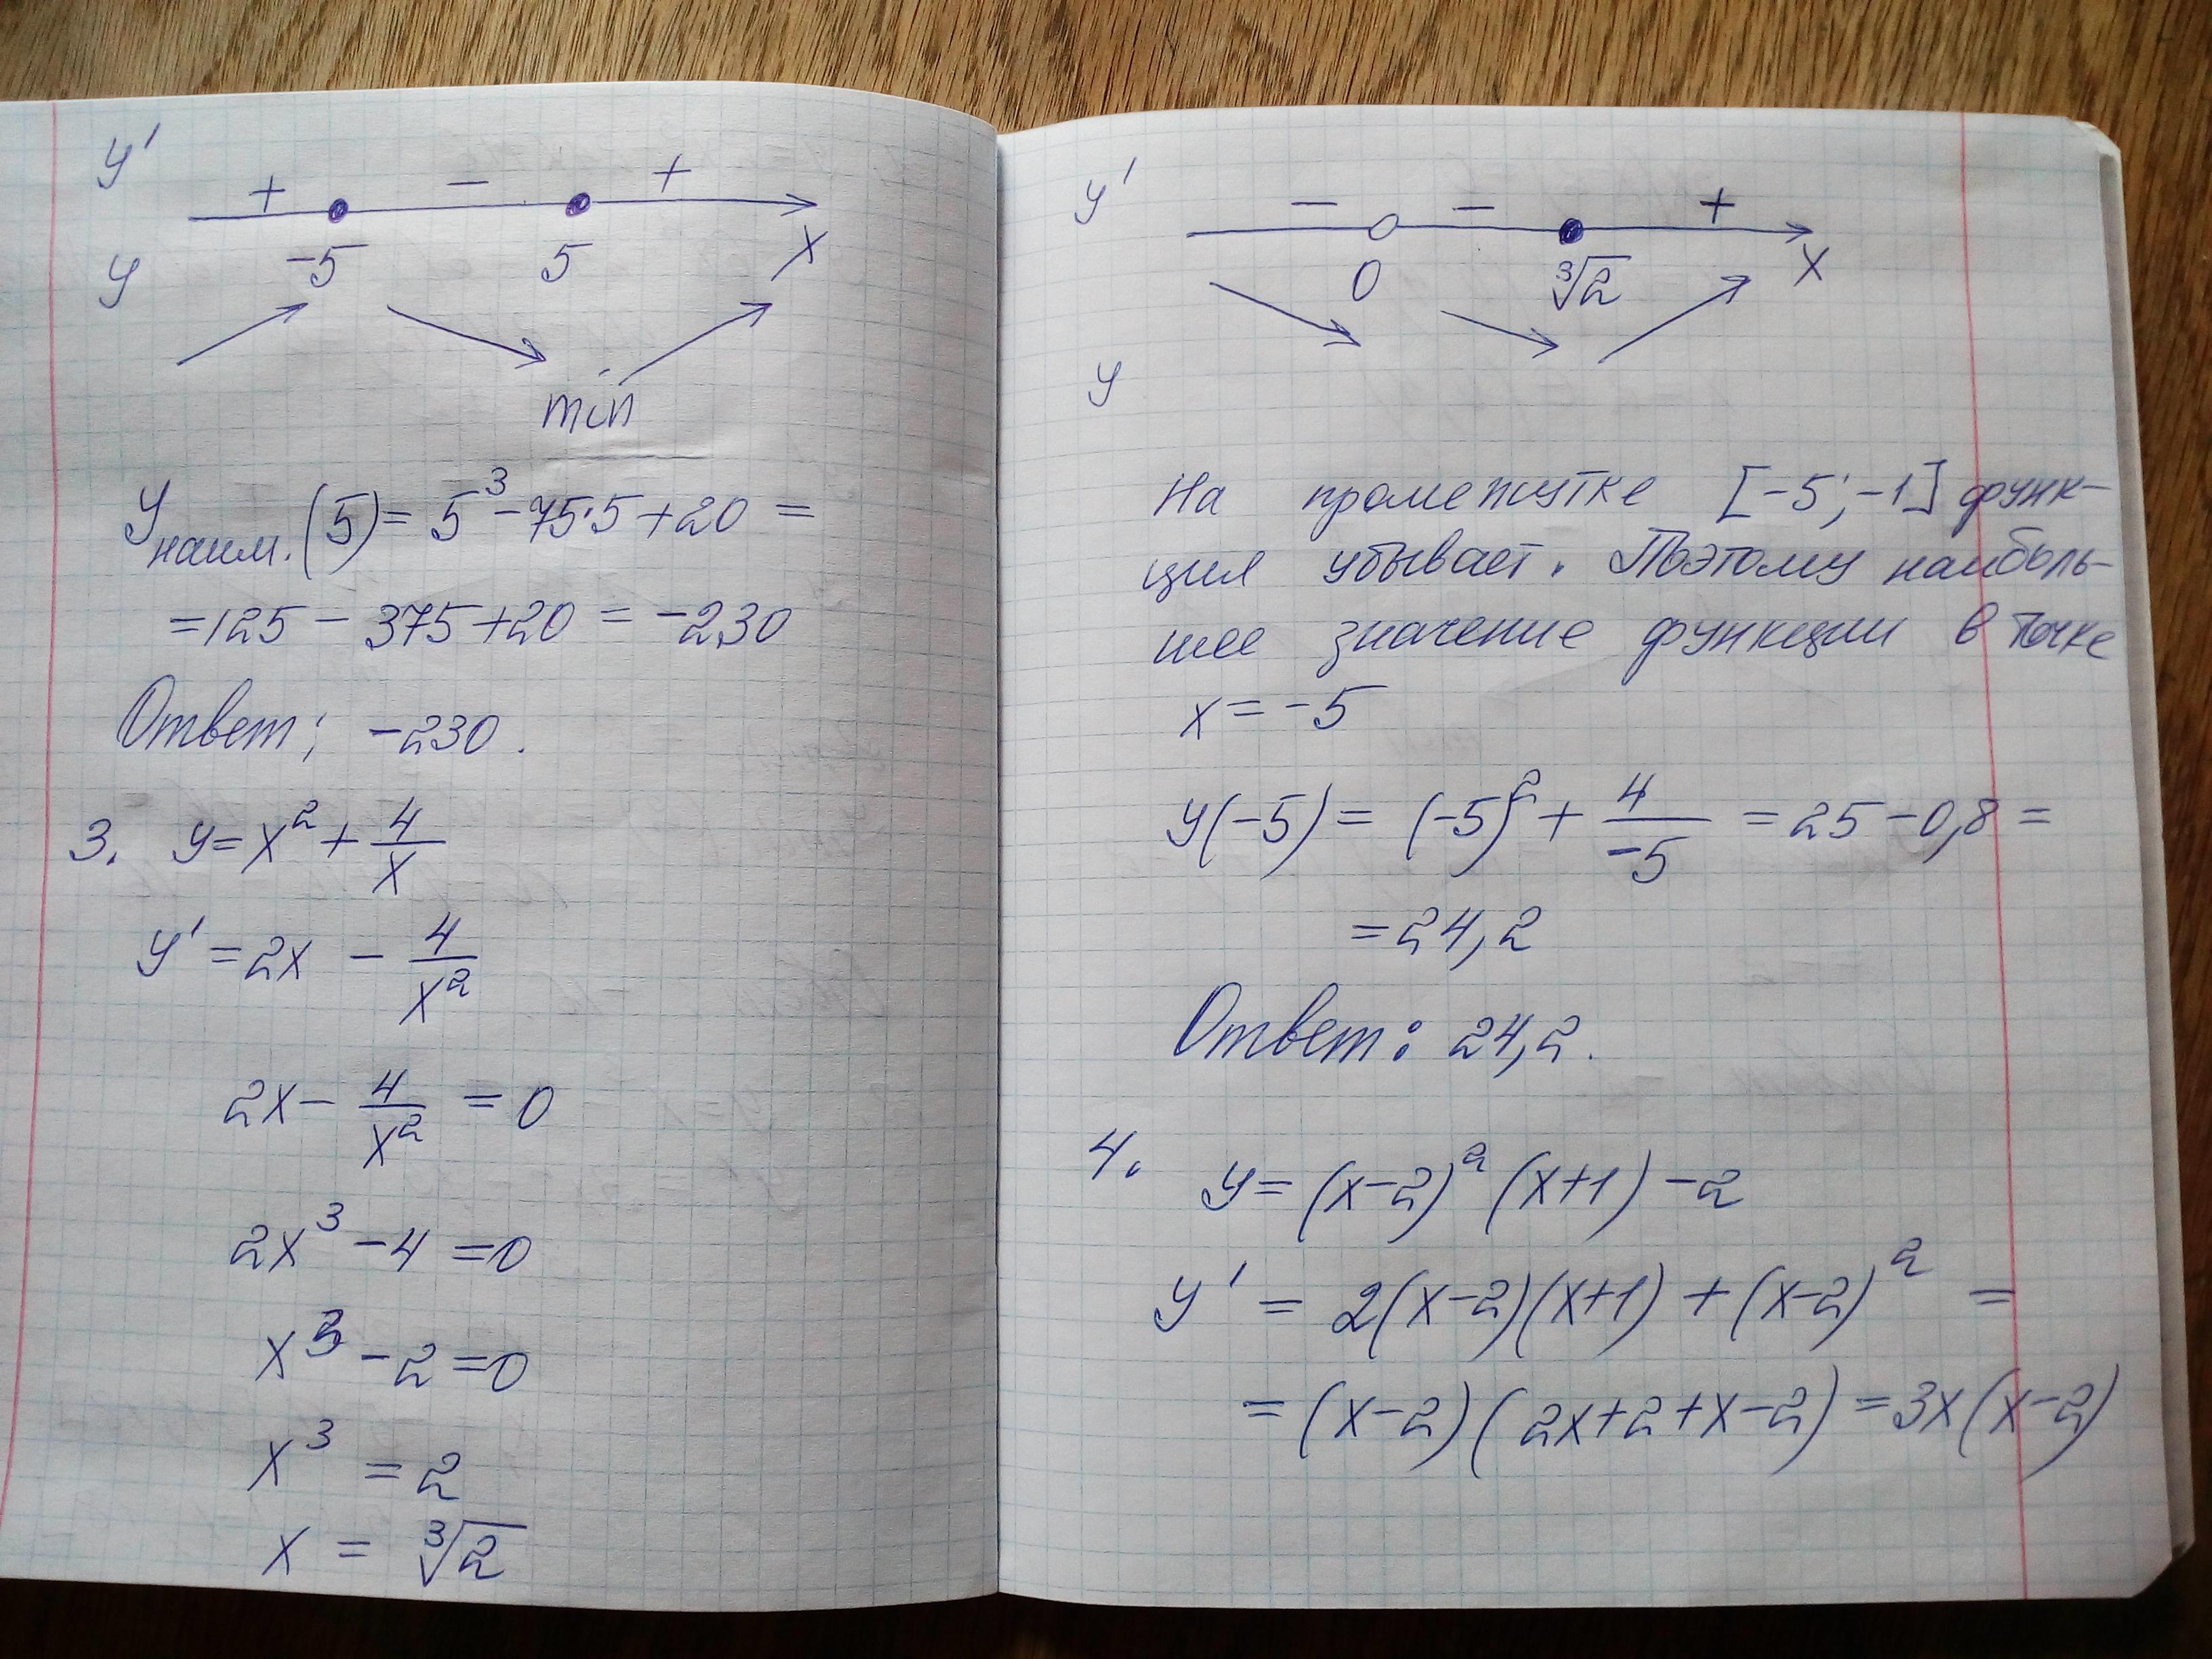 y'
+ − +
−5 5 x
y
min
y наим. (5) = 5³ − 75·5 + 20 =
= 125 − 375 + 20 = −230
Ответ: −230.
3. y = x² + 4/x
y' = 2x − 4/x²
2x − 4/x² = 0
2x³ − 4 = 0
x³ − 2 = 0
x³ = 2
x = ∛2
y'
− − +
0 ∛2 x
y
На промежутке [−5; −1] функ-
ция убывает. Поэтому наиболь-
шее значение функции в точке
x = −5
y(−5) = (−5)² + 4/−5 = 25 − 0,8 =
= 24,2
Ответ: 24,2.
4. y = (x−2)² (x+1) − 2
y' = 2(x−2)(x+1) + (x−2)² =
= (x−2)(2x+2+x−2) = 3x(x−2)